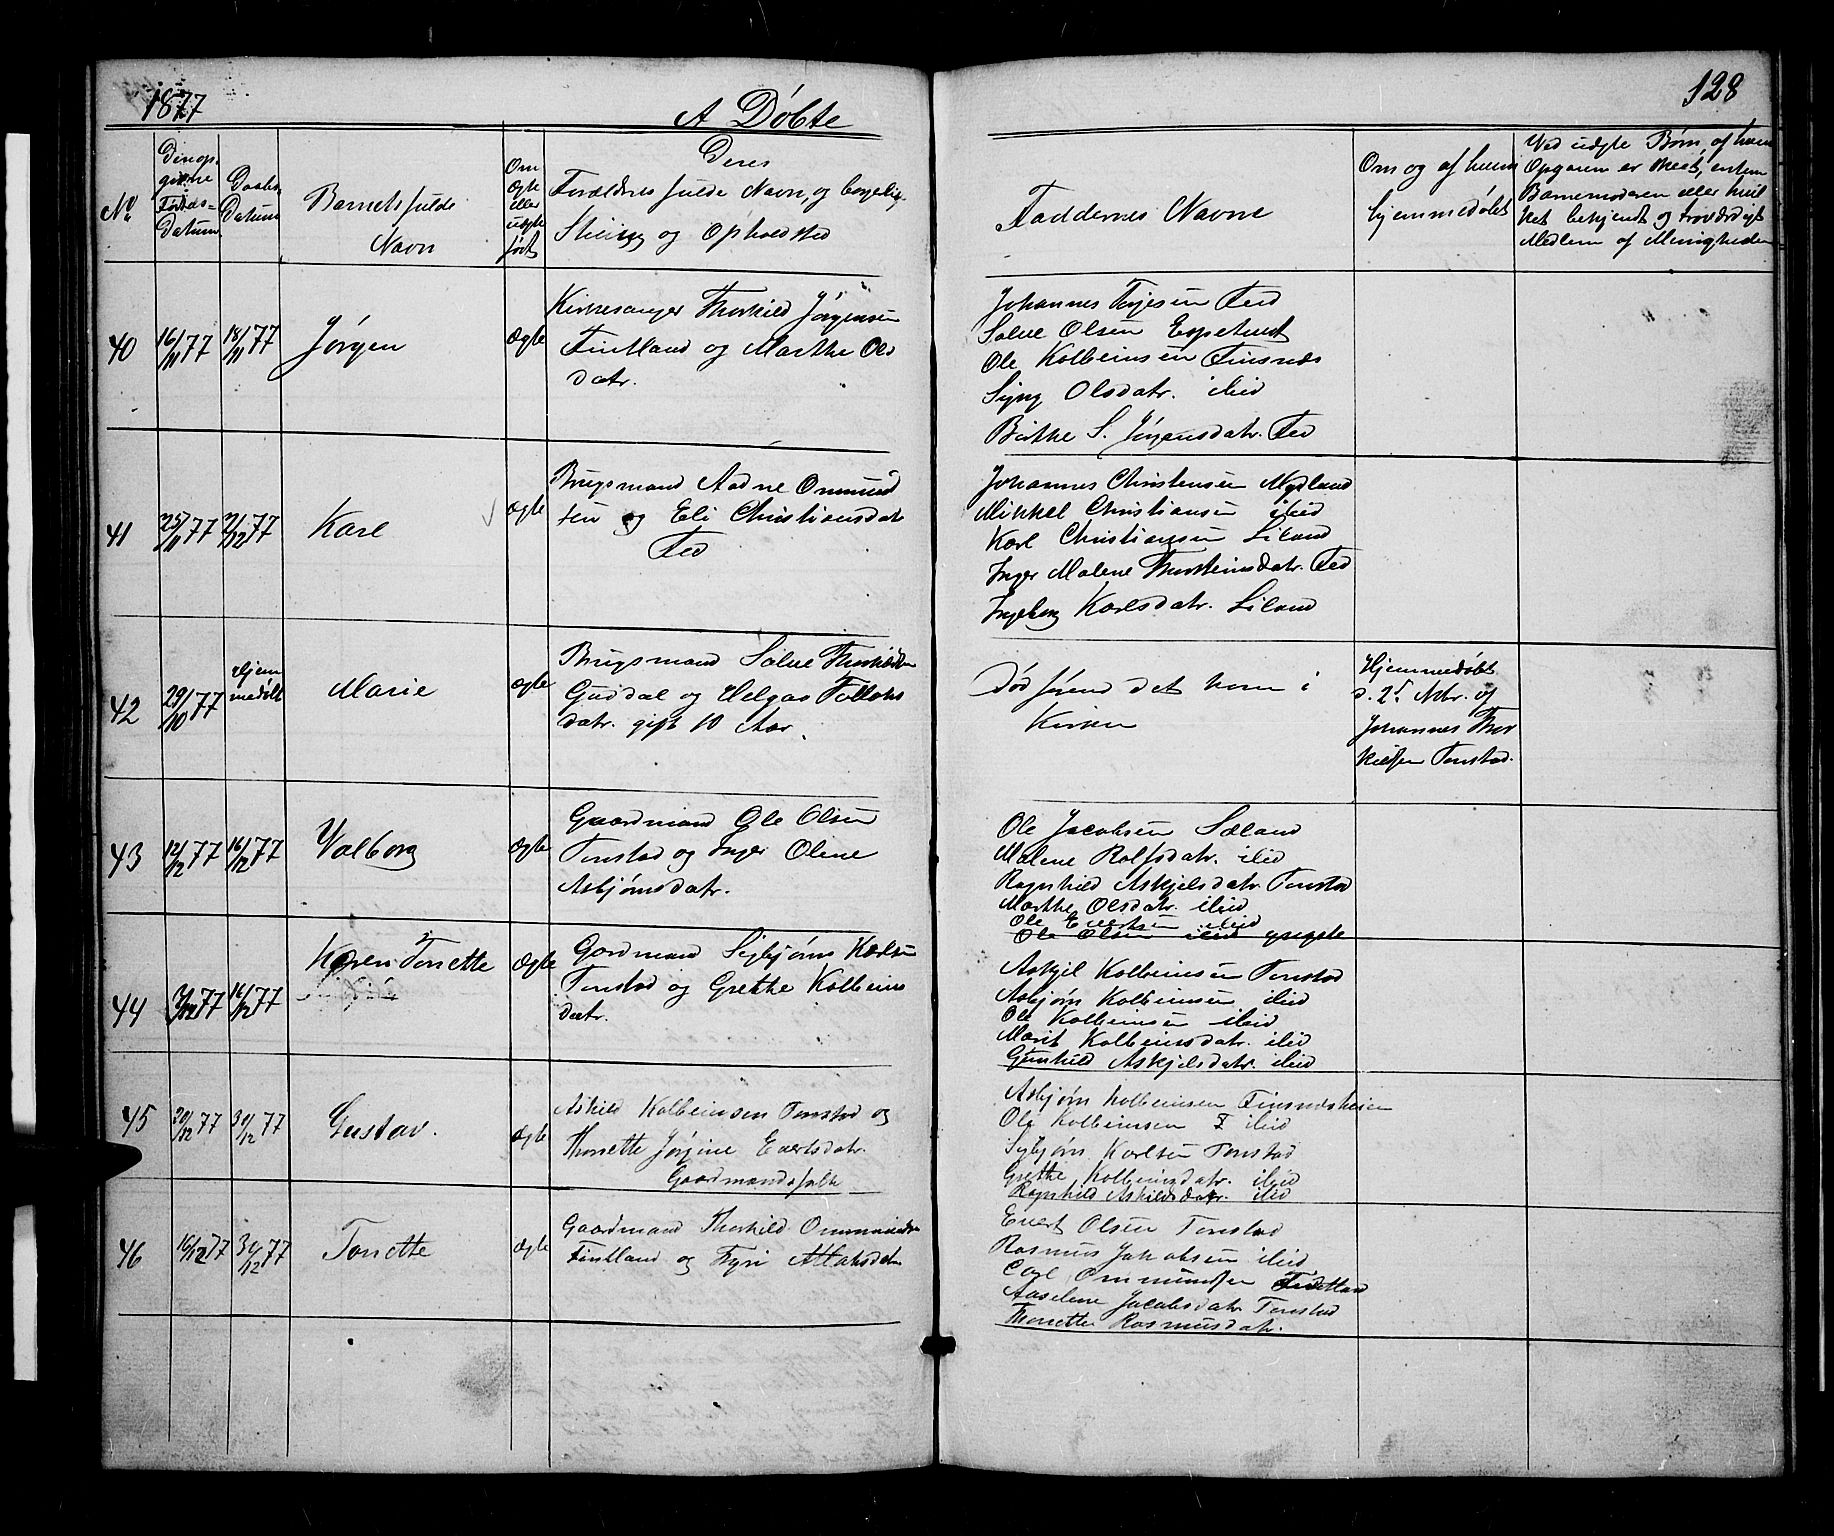 1877
A Døbte
128
No
Den op-
givne
Fødsels-
datum
Daabs
Datum
Barnets fulde
Navn
Om
ægte
eller
uægte
født
Deres
Forældres fulde Navn, og borgelig
Stilling og Opholdsted
Faddernes Navne
Om og af hvem
hjemmedøbt
Ved uægte Børn, af hvem
Opgaven er skeet, enten
Barnemoderen eller hvil
ket bekjendt og troværdigt
Medlem af Menigheden
40
16/11 77
18/11 77
Jørgen
Ægte
Kirkesanger Thorkild Jørgensen
Fintland og Marthe Ols
datr.
Johannes Terjesen Fed
Salve Olsen Espetveit
Ole Kolbeinsen Finsnæs
Signy Olsdatr. ibid
Birthe S. Jørgensdatr. Fed
41
25/11 77
2/12 77
Karl
Ægte
Brugsmand Aadne Ommund
sen og Eli Christiansdatr
Fed
Johannes Christensen Mydland
Mikkel Christiansen ibid
Karl Christiansen Liland
Inger Malene Thorsteinsdatr. Fed
Ingeborg Karlsdatr. Liland
42
29/10 77
Hjem
medøbt
Marie
Ægte
Brugsmand Salve Thorkildsen
Guddal og Helga Tollaks
datr. gift 10 Aar.
Død førend det kom i
Kirken
Hjemmedøbt
d. 2. Nbr. af
Johannes Thor
kildsen Tonstad.
43
12/12 77
16/12 77
Valborg
Ægte
Gaardmand Ole Olsen
Tonstad og Inger Oline
Asbjørnsdatr.
Ole Jacobsen Sæland
Malene Rolfsdatr. ibid
Ragnhild Askjelsdatr. Tonstad
Marthe Olsdatr. ibid
Ole Evertsen ibid
Ole Olsen ibid
44
77
16/12 77
Karen Tonette
Ægte
Gardmand Sigbjørn Karlsen
Tonstad og Grethe Kolbeins
datr.
Askjel Kolbeinsen Tonstad
Asbjørn Kolbeinsen ibid
Ole Kolbeinsen ibid
Marit Kolbeinsdatr. ibid
Gunhild Askjelsdatr. ibid
45
20/12 77
30/12 77
Gustav.
Ægte
Askild Kolbeinsen Tonstad og
Thonette Jørgine Evertsdatr.
Gaardmandsfolk
Asbjørn Kolbeinsen Finsnesheien
Ole Kolbeinsen ibid
Sigbjørn Karlsen Tonstad
Grethe Kolbeinsdatr. ibid
Ragnhild Askildsdatr. ibid
46
16/12 77
30/12 77
Tonette
Ægte
Gaardmand Thorkild Ommundsen
Fintland og Tyri Atlaksdatr
Evert Olsen Tonstad
Rasmus Jakobsen ibid
Carl Ommundsen Fintland
Aaselene Jacobsdatr Tonstad
Thonette Rasmusdatr.